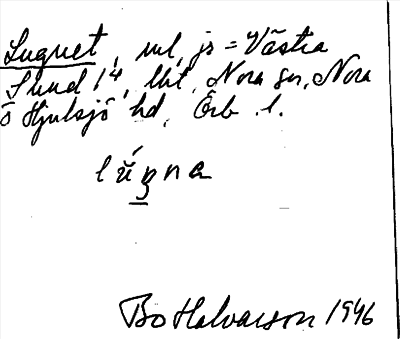 Lugnet, ml, js = Västra
Sund 1⁴, lht, Nora sn, Nora
o Hjulsjö hd, Örb. l.
lúŋna
Bo Halvarson 1946